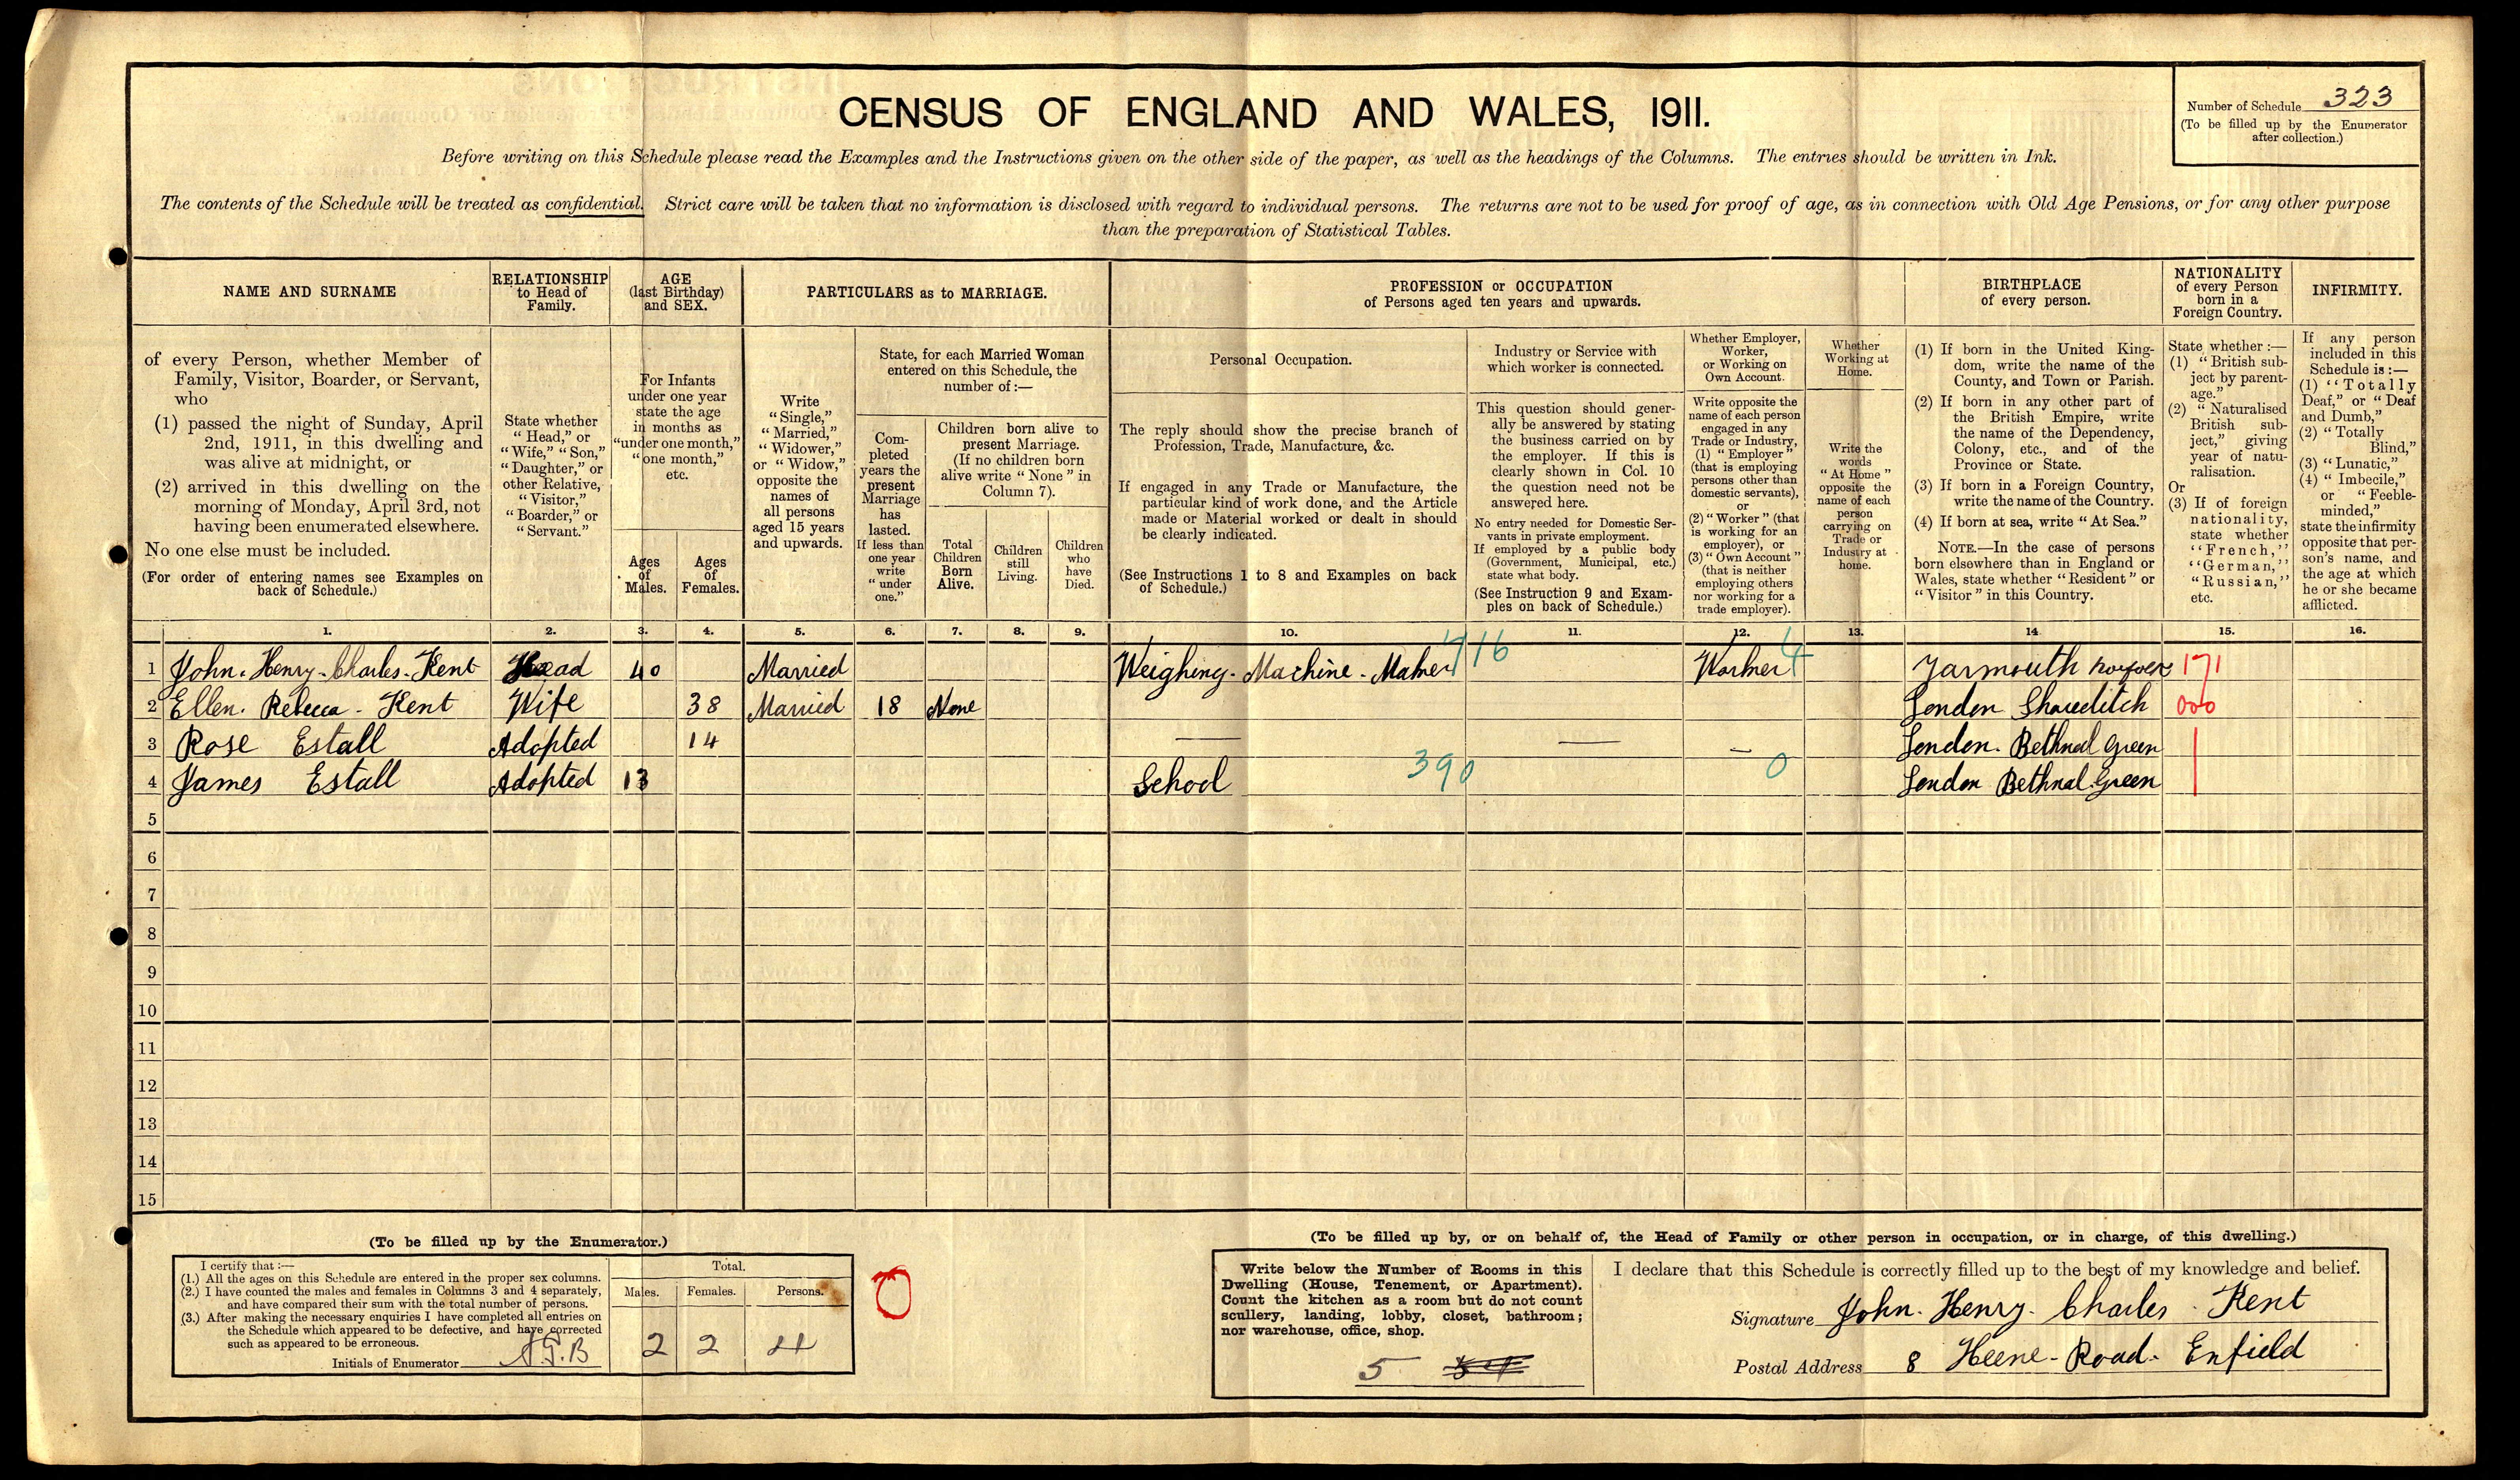 CENSUS OF ENGLAND AND WALES, 1911.
Number of Schedule 323
(To be filled up by the Enumerator
after collection.)
Before writing on this Schedule please read the Examples and the Instructions given on the other side of the paper, as well as the headings of the Columns. The entries should be written in Ink.
The contents of the Schedule will be treated as confidential. Strict care will be taken that no information is disclosed with regard to individual persons. The returns are not to be used for proof of age, as in connection with Old Age Pensions, or for any other purpose
than the preparation of Statistical Tables.
NAME AND SURNAME
of every Person, whether Member of
Family, Visitor, Boarder, or Servant,
who
(1) passed the night of Sunday, April
2nd, 1911, in this dwelling and
was alive at midnight, or
(2) arrived in this dwelling on the
morning of Monday, April 3rd, not
having been enumerated elsewhere.
No one else must be included.
(For order of entering names see Examples on
back of Schedule.)
RELATIONSHIP
to Head of
Family.
State whether
"Head," or
"Wife," "Son,"
"Daughter," or
other Relative,
"Visitor,"
"Boarder," or
"Servant."
AGE
(last Birthday)
and SEX.
For Infants
under one year
state the age
in months as
"under one month,"
"one month,"
etc.
Ages
of
Males.
Ages
of
Females.
PARTICULARS as to MARRIAGE.
Write
"Single,"
"Married,"
"Widower,"
or "Widow,"
opposite the
names of
all persons
aged 15 years
and upwards.
State, for each Married Woman
entered on this Schedule, the
number of :—
Com-
pleted
years the
present
Marriage
has
lasted.
If less than
one year
write
"under
one."
Children born alive to
present Marriage.
(If no children born
alive write "None" in
Column 7).
Total
Children
Born
Alive.
Children
still
Living.
Children
who
have
Died.
PROFESSION or OCCUPATION
of Persons aged ten years and upwards.
Personal Occupation.
The reply should show the precise branch of
Profession, Trade, Manufacture, &c.
If engaged in any Trade or Manufacture, the
particular kind of work done, and the Article
made or Material worked or dealt in should
be clearly indicated.
(See Instructions 1 to 8 and Examples on back
of Schedule.)
Industry or Service with
which worker is connected.
This question should gener-
ally be answered by stating
the business carried on by
the employer. If this is
clearly shown in Col. 10
the question need not be
answered here.
No entry needed for Domestic Ser-
vants in private employment.
If employed by a public body
(Government, Municipal, etc.)
state what body.
(See Instruction 9 and Exam-
ples on back of Schedule.)
Whether Employer,
Worker,
or Working on
Own Account.
Write opposite the
name of each person
engaged in any
Trade or Industry,
(1) "Employer"
(that is employing
persons other than
domestic servants),
or
(2) "Worker" (that
is working for an
employer), or
(3) "Own Account"
(that is neither
employing others
nor working for a
trade employer).
Whether
Working at
Home.
Write the
words
"At Home"
opposite the
name of each
person
carrying on
Trade or
Industry at
home.
BIRTHPLACE
of every person.
(1) If born in the United King-
dom, write the name of the
County, and Town or Parish.
(2) If born in any other part of
the British Empire, write
the name of the Dependency,
Colony, etc., and of the
Province or State.
(3) If born in a Foreign Country,
write the name of the Country.
(4) If born at sea, write "At Sea."
NOTE.—In the case of persons
born elsewhere than in England or
Wales, state whether "Resident" or
"Visitor" in this Country.
NATIONALITY
of every Person
born in a
Foreign Country.
State whether :—
(1) "British sub-
ject by parent-
age."
(2) "Naturalised
British sub-
ject," giving
year of natu-
ralisation.
Or
(3) If of foreign
nationality,
state whether
"French,"
"German,"
"Russian,"
etc.
INFIRMITY.
If any person
included in this
Schedule is :—
(1) "Totally
Deaf," or "Deaf
and Dumb,"
(2) "Totally
Blind,"
(3) "Lunatic,"
(4) "Imbecile,"
or "Feeble-
minded,"
state the infirmity
opposite that per-
son's name, and
the age at which
he or she became
afflicted.
1. 2. 3. 4. 5. 6. 7. 8. 9. 10. 11. 12. 13. 14. 15. 16.
1 John. Henry. Charles. Kent Head 40 Married Weighing. Machine. Maker 716 Worker 4 Yarmouth Norfolk 171
2 Ellen. Rebecca. Kent Wife 38 Married 18 None London Shoreditch 000
3 Rose Estall Adopted 14 — — — London. Bethnal Green |
4 James Estall Adopted 13 School 390 0 London Bethnal Green |
5
6
7
8
9
10
11
12
13
14
15
(To be filled up by the Enumerator.)
I certify that :—
(1.) All the ages on this Schedule are entered in the proper sex columns.
(2.) I have counted the males and females in Columns 3 and 4 separately,
and have compared their sum with the total number of persons.
(3.) After making the necessary enquiries I have completed all entries on
the Schedule which appeared to be defective, and have corrected
such as appeared to be erroneous.
Initials of Enumerator
Total.
Males. Females. Persons.
2 2 4
0
(To be filled up by, or on behalf of, the Head of Family or other person in occupation, or in charge, of this dwelling.)
Write below the Number of Rooms in this
Dwelling (House, Tenement, or Apartment).
Count the kitchen as a room but do not count
scullery, landing, lobby, closet, bathroom;
nor warehouse, office, shop.
5
I declare that this Schedule is correctly filled up to the best of my knowledge and belief.
Signature John. Henry. Charles. Kent
Postal Address 8 Heene. Road. Enfield